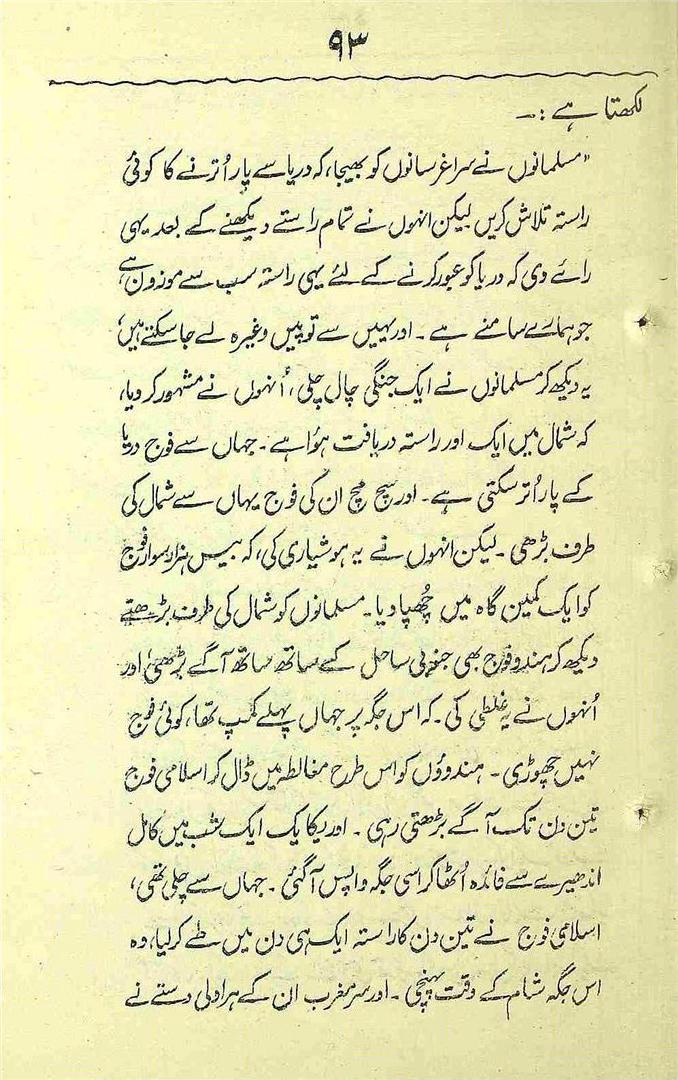 ۹۳
لکھتا ہے :—
"مسلمانوں نے سراغرسانوں کو بھیجا، کہ دریا سے پار اُترنے کا کوئی
راستہ تلاش کریں لیکن انہوں نے تمام راستے دیکھنے کے بعد یہی
رائے دی کہ دریا کو عبور کرنے کے لئے یہی راستہ سب سے موزون ہے،
جو ہمارے سامنے ہے ۔ اور یہیں سے توپیں وغیرہ لے جا سکتے ہیں،
یہ دیکھ کر مسلمانوں نے ایک جنگی چال چلی، اُنہوں نے مشہور کر دیا،
کہ شمال میں ایک اور راستہ دریافت ہؤا ہے ۔ جہاں سے فوج دریا
کے پار اُتر سکتی ہے ۔ اور سچ مچ ان کی فوج یہاں سے شمال کی
طرف بڑھی ۔ لیکن انہوں نے یہ ہوشیاری کی، کہ بیس ہزار سوار فوج
کو ایک کمین گاہ میں چُھپا دیا ۔ مسلمانوں کو شمال کی طرف بڑھتے
دیکھ کر ہندو فوج بھی جنوبی ساحل کے ساتھ ساتھ آگے بڑھی، اور
اُنہوں نے یہ غلطی کی ۔ کہ اس جگہ پر جہاں پہلے کمپ تھا، کوئی فوج
نہیں چھوڑی ۔ ہندوؤں کو اس طرح مغالطہ میں ڈال کر اسلامی فوج
تین دن تک آگے بڑھتی رہی ۔ اور یکایک ایک شب میں کامل
اندھیرے سے فائدہ اُٹھا کر اسی جگہ واپس آگئی ۔ جہاں سے چلی تھی،
اسلامی فوج نے تین دن کا راستہ ایک ہی دن میں طے کر لیا، وہ
اس جگہ شام کے وقت پہنچی ۔ اور سرِ مغرب ان کے ہراولی دستے نے